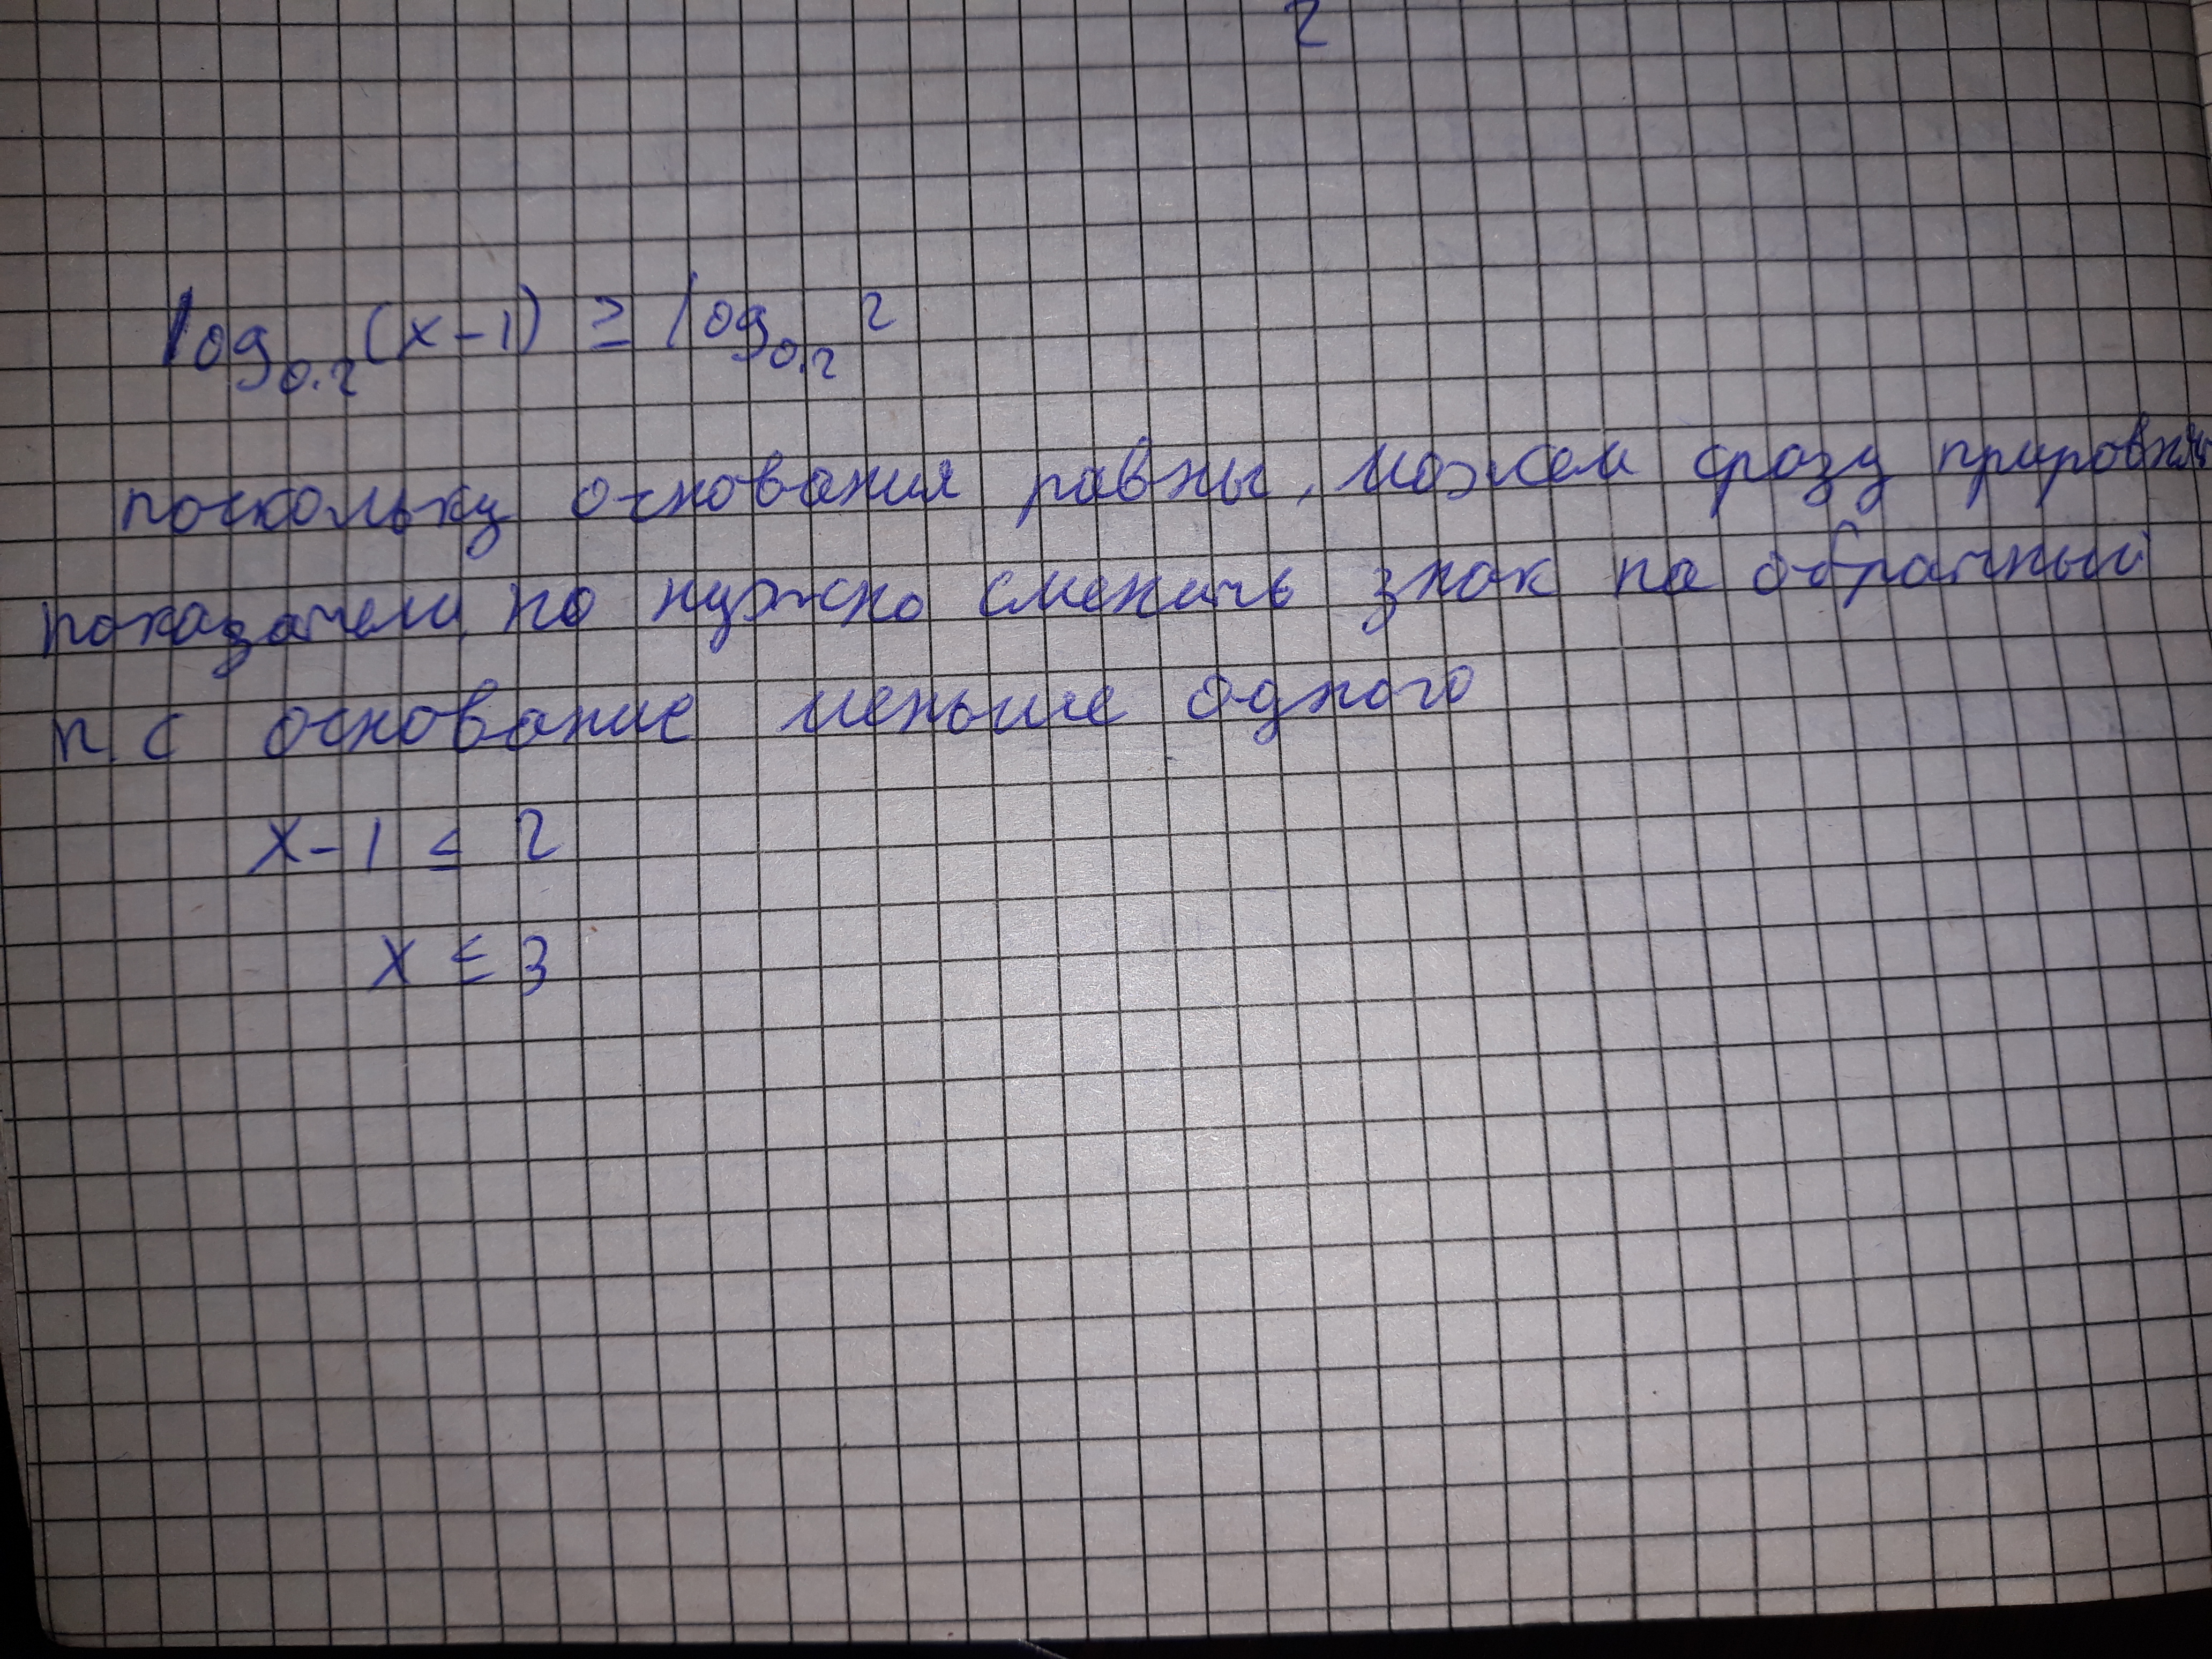 2
log₀.₂(x-1) ≥ log₀.₂ 2
поскольку основания равны, можем сразу
показатели, но нужно сменить знак на обратный
т.с основание меньше одного
x-1 ≤ 2
x ≤ 3